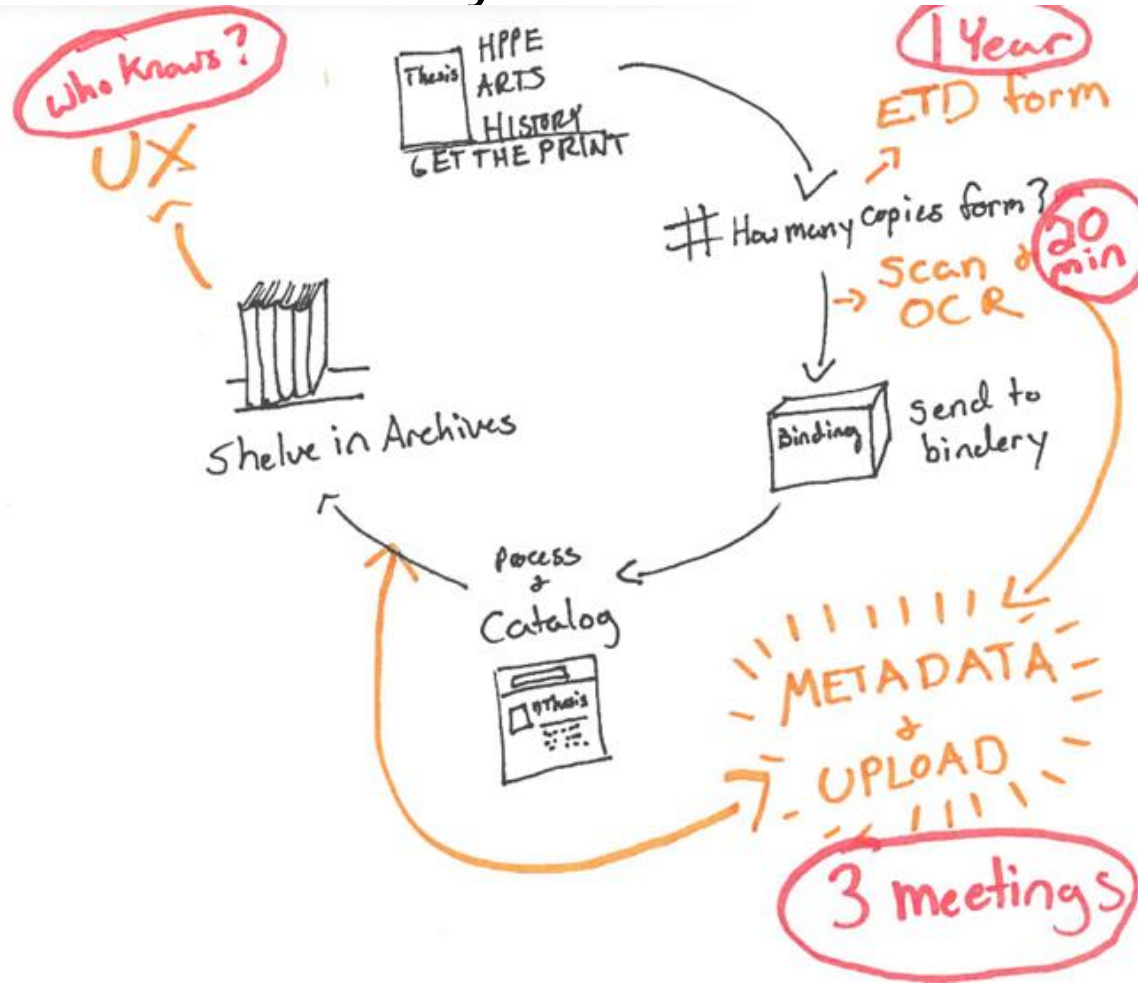 who knows?
UX
Thesis
HPPE
ARTS
HISTORY
GET THE PRINT
1 Year
ETD form
# How many copies form?
20
min
scan &
OCR
Binding
send to
bindery
Shelve in Archives
Process
&
Catalog
Thesis
METADATA
&
UPLOAD
3 meetings